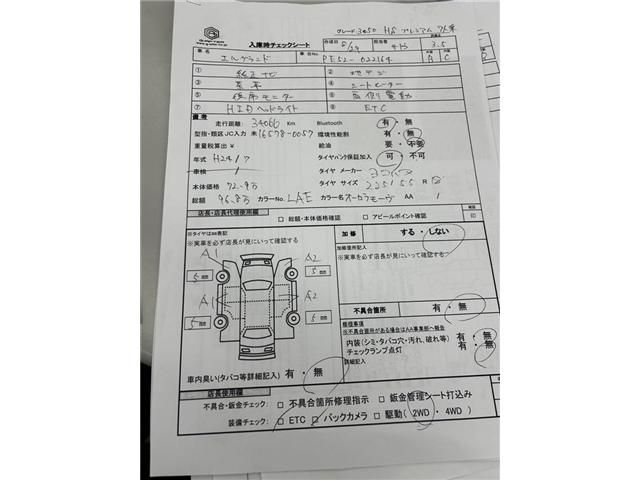 グレード 3.50 HS プレミアム 7人乗
入庫時チェックシート 作成日 8/29 担当者 3.5
車名 エルグランド 車台No PE52-022164 B C
① 純正ナビ ② 地デジ
③ 黒革 ④ シートヒーター
⑤ 後席モニター ⑥ 両側電動
⑦ HIDヘッドライト ⑧ ETC
備考
走行距離: 34066 Km Bluetooth 有・無
型指・類区JC入力 未16578-0057 環境性能割 有・無
重量税算出 ¥ 給油 要・不要
年式 H24/7 タイヤパンク保証加入 可・不可
車検 / タイヤ メーカー ヨコハマ
本体価格 72.9万 タイヤ サイズ 225/55 R 18
総額 96.8万 カラーNo. LAE カラー名 オーロラモーヴ AA /
店長・店長代理使用欄 □ 総額・本体価格確認 □ アピールポイント確認 印
※タイヤは㎜表記
※実車を必ず店長が見にいって確認する
加修 する・しない
加修箇所記入
※実車を必ず店長が見にいって確認する
A1 A2
5 mm 5 mm
A1 A2
5 mm 5 mm
不具合箇所 有・無
修理事項
※不具合箇所がある場合はAA事業部へ報告
内装(シミ・タバコ穴・汚れ、破れ等) 有・無
チェックランプ点灯 有・無
詳細記入
車内臭い(タバコ等詳細記入) 有・無
店長使用欄
不具合・鈑金チェック: □ 不具合箇所修理指示 □ 鈑金管理シート打込み
装備チェック: □ ETC □ バックカメラ □ 駆動(2WD・4WD)